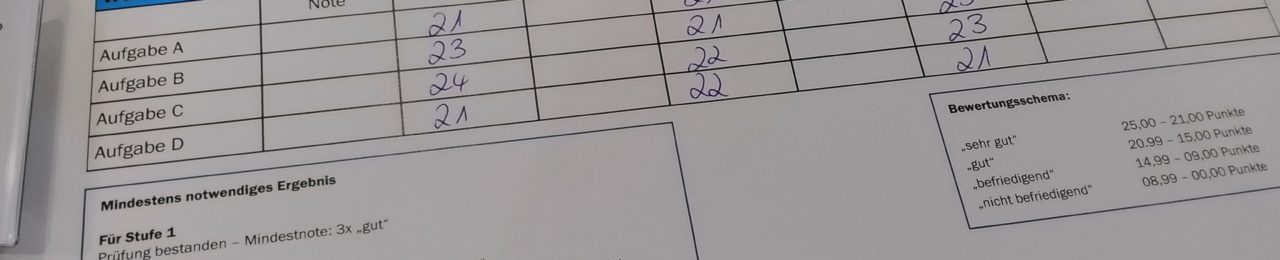 Note
Aufgabe A 21
Aufgabe B 23 21
Aufgabe C 24 22 23
Aufgabe D 21 22 21
Mindestens notwendiges Ergebnis
Für Stufe 1
Prüfung bestanden – Mindestnote: 3x „gut“
Bewertungsschema:
„sehr gut“ 25,00 – 21,00 Punkte
„gut“ 20,99 – 15,00 Punkte
„befriedigend“ 14,99 – 09,00 Punkte
„nicht befriedigend“ 08,99 – 00,00 Punkte